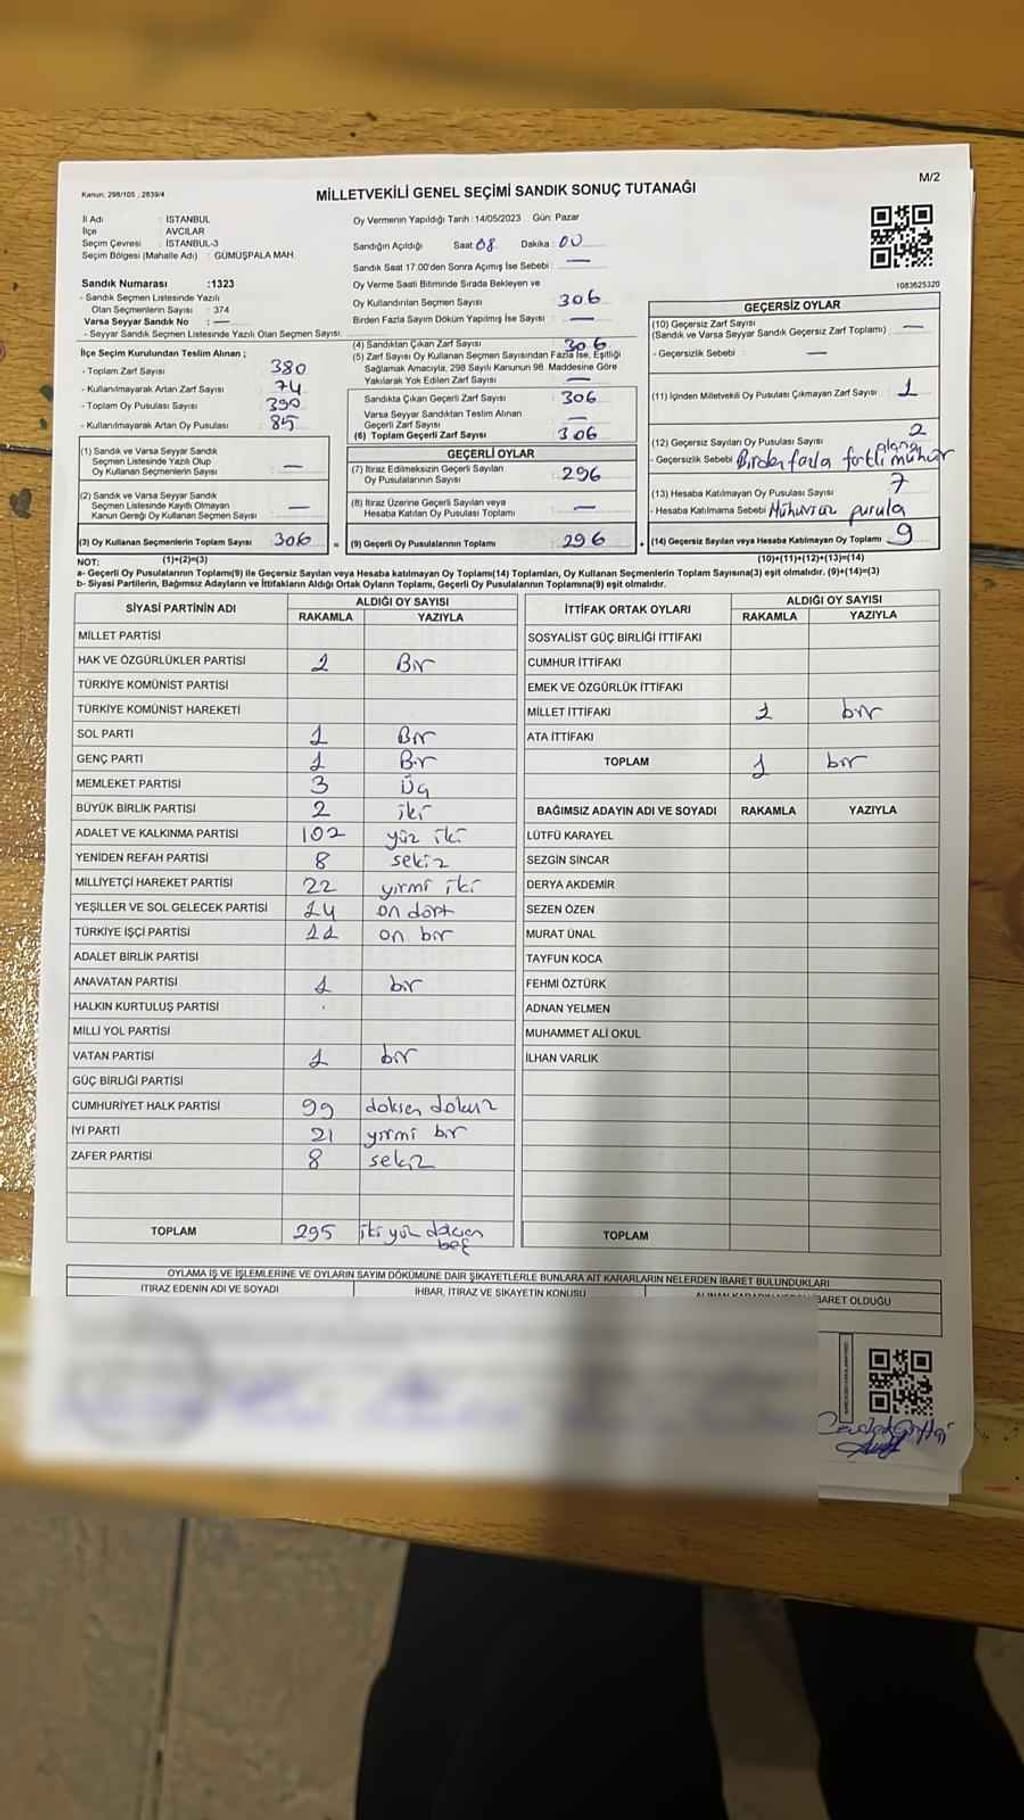 Kanun: 298/105 ; 2839/4
MİLLETVEKİLİ GENEL SEÇİMİ SANDIK SONUÇ TUTANAĞI
M/2
İl Adı : İSTANBUL
İlçe : AVCILAR
Seçim Çevresi : İSTANBUL-3
Seçim Bölgesi (Mahalle Adı) : GÜMÜŞPALA MAH.
Oy Vermenin Yapıldığı Tarih : 14/05/2023 Gün: Pazar
Sandığın Açıldığı Saat : 08 Dakika : 00
Sandık Saat 17.00'den Sonra Açımış İse Sebebi : —
Oy Verme Saati Bitiminde Sırada Bekleyen ve
Oy Kullandırılan Seçmen Sayısı 306
Birden Fazla Sayım Döküm Yapılmış İse Sayısı —
1083625320
Sandık Numarası :1323
- Sandık Seçmen Listesinde Yazılı
Olan Seçmenlerin Sayısı : 374
Varsa Seyyar Sandık No : —
- Seyyar Sandık Seçmen Listesinde Yazılı Olan Seçmen Sayısı:
İlçe Seçim Kurulundan Teslim Alınan ;
- Toplam Zarf Sayısı 380
- Kullanılmayarak Artan Zarf Sayısı 74
- Toplam Oy Pusulası Sayısı 390
- Kullanılmayarak Artan Oy Pusulası 85
(1) Sandık ve Varsa Seyyar Sandık
Seçmen Listesinde Yazılı Olup
Oy Kullanan Seçmenlerin Sayısı —
(2) Sandık ve Varsa Seyyar Sandık
Seçmen Listesinde Kayıtlı Olmayan
Kanun Gereği Oy Kullanan Seçmen Sayısı —
(3) Oy Kullanan Seçmenlerin Toplam Sayısı 306
(4) Sandıktan Çıkan Zarf Sayısı 306
(5) Zarf Sayısı Oy Kullanan Seçmen Sayısından Fazla İse, Eşitliği
Sağlamak Amacıyla, 298 Sayılı Kanunun 98. Maddesine Göre
Yakılarak Yok Edilen Zarf Sayısı —
Sandıkta Çıkan Geçerli Zarf Sayısı 306
Varsa Seyyar Sandıktan Teslim Alınan
Geçerli Zarf Sayısı —
(6) Toplam Geçerli Zarf Sayısı 306
GEÇERLİ OYLAR
(7) İtiraz Edilmeksizin Geçerli Sayılan
Oy Pusulalarının Sayısı 296
(8) İtiraz Üzerine Geçerli Sayılan veya
Hesaba Katılan Oy Pusulası Toplamı —
= (9) Geçerli Oy Pusulalarının Toplamı 296
GEÇERSİZ OYLAR
(10) Geçersiz Zarf Sayısı
(Sandık ve Varsa Seyyar Sandık Geçersiz Zarf Toplamı) —
- Geçersizlik Sebebi —
(11) İçinden Milletvekili Oy Pusulası Çıkmayan Zarf Sayısı 1
(12) Geçersiz Sayılan Oy Pusulası Sayısı 2
- Geçersizlik Sebebi Birden fazla fartlı alana mühür
(13) Hesaba Katılmayan Oy Pusulası Sayısı 7
- Hesaba Katılmama Sebebi Mühürsüz pusula
+ (14) Geçersiz Sayılan veya Hesaba Katılmayan Oy Toplamı 9
NOT: (1)+(2)=(3) (10)+(11)+(12)+(13)=(14)
a- Geçerli Oy Pusulalarının Toplamı(9) ile Geçersiz Sayılan veya Hesaba katılmayan Oy Toplamı(14) Toplamları, Oy Kullanan Seçmenlerin Toplam Sayısına(3) eşit olmalıdır. (9)+(14)=(3)
b- Siyasi Partilerin, Bağımsız Adayların ve İttifakların Aldığı Ortak Oyların Toplamı, Geçerli Oy Pusulalarının Toplamına(9) eşit olmalıdır.
SİYASİ PARTİNİN ADI ALDIĞI OY SAYISI
RAKAMLA YAZIYLA
MİLLET PARTİSİ
HAK VE ÖZGÜRLÜKLER PARTİSİ 1 Bir
TÜRKİYE KOMÜNİST PARTİSİ
TÜRKİYE KOMÜNİST HAREKETİ
SOL PARTİ 1 Bir
GENÇ PARTİ 1 Bir
MEMLEKET PARTİSİ 3 Üç
BÜYÜK BİRLİK PARTİSİ 2 iki
ADALET VE KALKINMA PARTİSİ 102 yüz iki
YENİDEN REFAH PARTİSİ 8 sekiz
MİLLİYETÇİ HAREKET PARTİSİ 22 yirmi iki
YEŞİLLER VE SOL GELECEK PARTİSİ 14 on dört
TÜRKİYE İŞÇİ PARTİSİ 11 on bir
ADALET BİRLİK PARTİSİ
ANAVATAN PARTİSİ 1 bir
HALKIN KURTULUŞ PARTİSİ
MİLLİ YOL PARTİSİ
VATAN PARTİSİ 1 bir
GÜÇ BİRLİĞİ PARTİSİ
CUMHURİYET HALK PARTİSİ 99 doksen dokuz
İYİ PARTİ 21 yirmi bir
ZAFER PARTİSİ 8 sekiz
TOPLAM 295 iki yüz doksen beş
İTTİFAK ORTAK OYLARI ALDIĞI OY SAYISI
RAKAMLA YAZIYLA
SOSYALİST GÜÇ BİRLİĞİ İTTİFAKI
CUMHUR İTTİFAKI
EMEK VE ÖZGÜRLÜK İTTİFAKI
MİLLET İTTİFAKI 1 bir
ATA İTTİFAKI
TOPLAM 1 bir
BAĞIMSIZ ADAYIN ADI VE SOYADI RAKAMLA YAZIYLA
LÜTFÜ KARAYEL
SEZGİN SİNCAR
DERYA AKDEMİR
SEZEN ÖZEN
MURAT ÜNAL
TAYFUN KOCA
FEHMİ ÖZTÜRK
ADNAN YELMEN
MUHAMMET ALİ OKUL
İLHAN VARLIK
TOPLAM
OYLAMA İŞ VE İŞLEMLERİNE VE OYLARIN SAYIM DÖKÜMÜNE DAİR ŞİKAYETLERLE BUNLARA AİT KARARLARIN NELERDEN İBARET BULUNDUKLARI
İTİRAZ EDENİN ADI VE SOYADI İHBAR, İTİRAZ VE ŞİKAYETİN KONUSU İBARET OLDUĞU